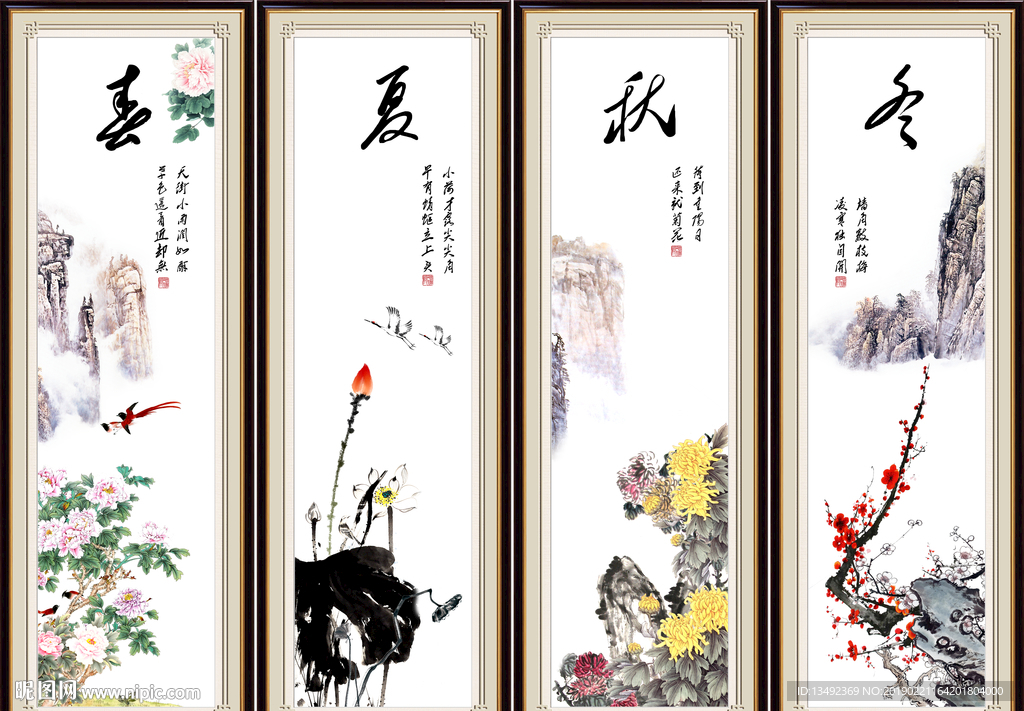 春
天街小雨潤如酥
草色遥看近却無
夏
小荷才露尖尖角
早有蜻蜓立上头
秋
待到重陽日
还来就菊花
冬
墙角數枝梅
凌寒独自開
昵图网 www.nipic.com
ID:13492369 NO:20190221164201804000